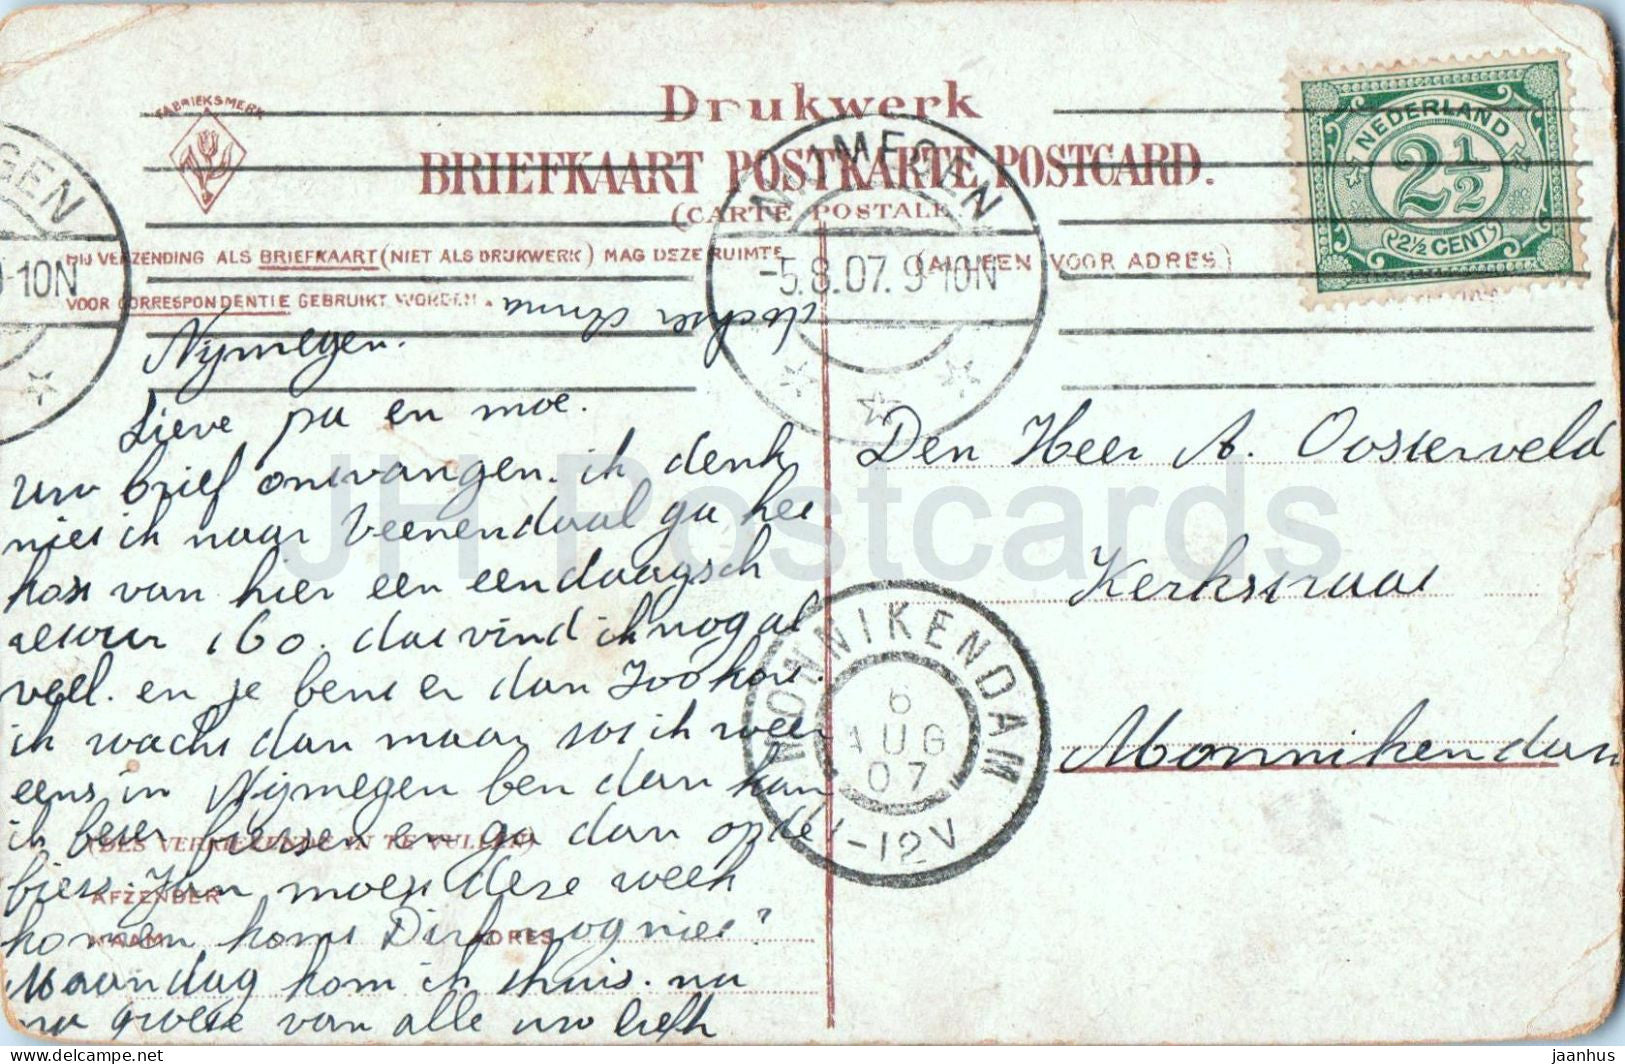 Drukwerk
FABRIEKSMERK
BRIEFKAART POSTKARTE POSTCARD.
(CARTE POSTALE
BIJ VERZENDING ALS BRIEFKAART (NIET ALS DRUKWERK) MAG DEZE RUIMTE
VOOR CORRESPONDENTIE GEBRUIKT WORDEN.
(ALLEEN VOOR ADRES)
NEDERLAND
2½
2½ CENT
GEN
9-10N
NIJMEGEN
-5.8.07. 9-10N
dochter Anna
Nijmegen.
Lieve pa en moe.
Uw brief ontvangen. ik denk
niet ik naar Veenendaal ga het
kost van hier een eendaagsch
retour 160. dat vind ik nog al
veel. en je bent er dan zoo kort.
ik wacht dan maar tot ik weer
eens in Nijmegen ben dan kan
ik beter fietsen en ga dan op de
fiets. Jan moest deze week
komen, komt Dirk nog niet?
Maandag kom ik thuis. na
groete van alle uw liefh
(DES VERKIEZENDE IN TE VULLEN)
AFZENDER
NAAM
ADRES
Den Heer A. Oosterveld
Kerkstraat
Monnikendam
MONNIKENDAM
6
AUG
07
-12V
JH Postcards
delcampe.net
jaanhus